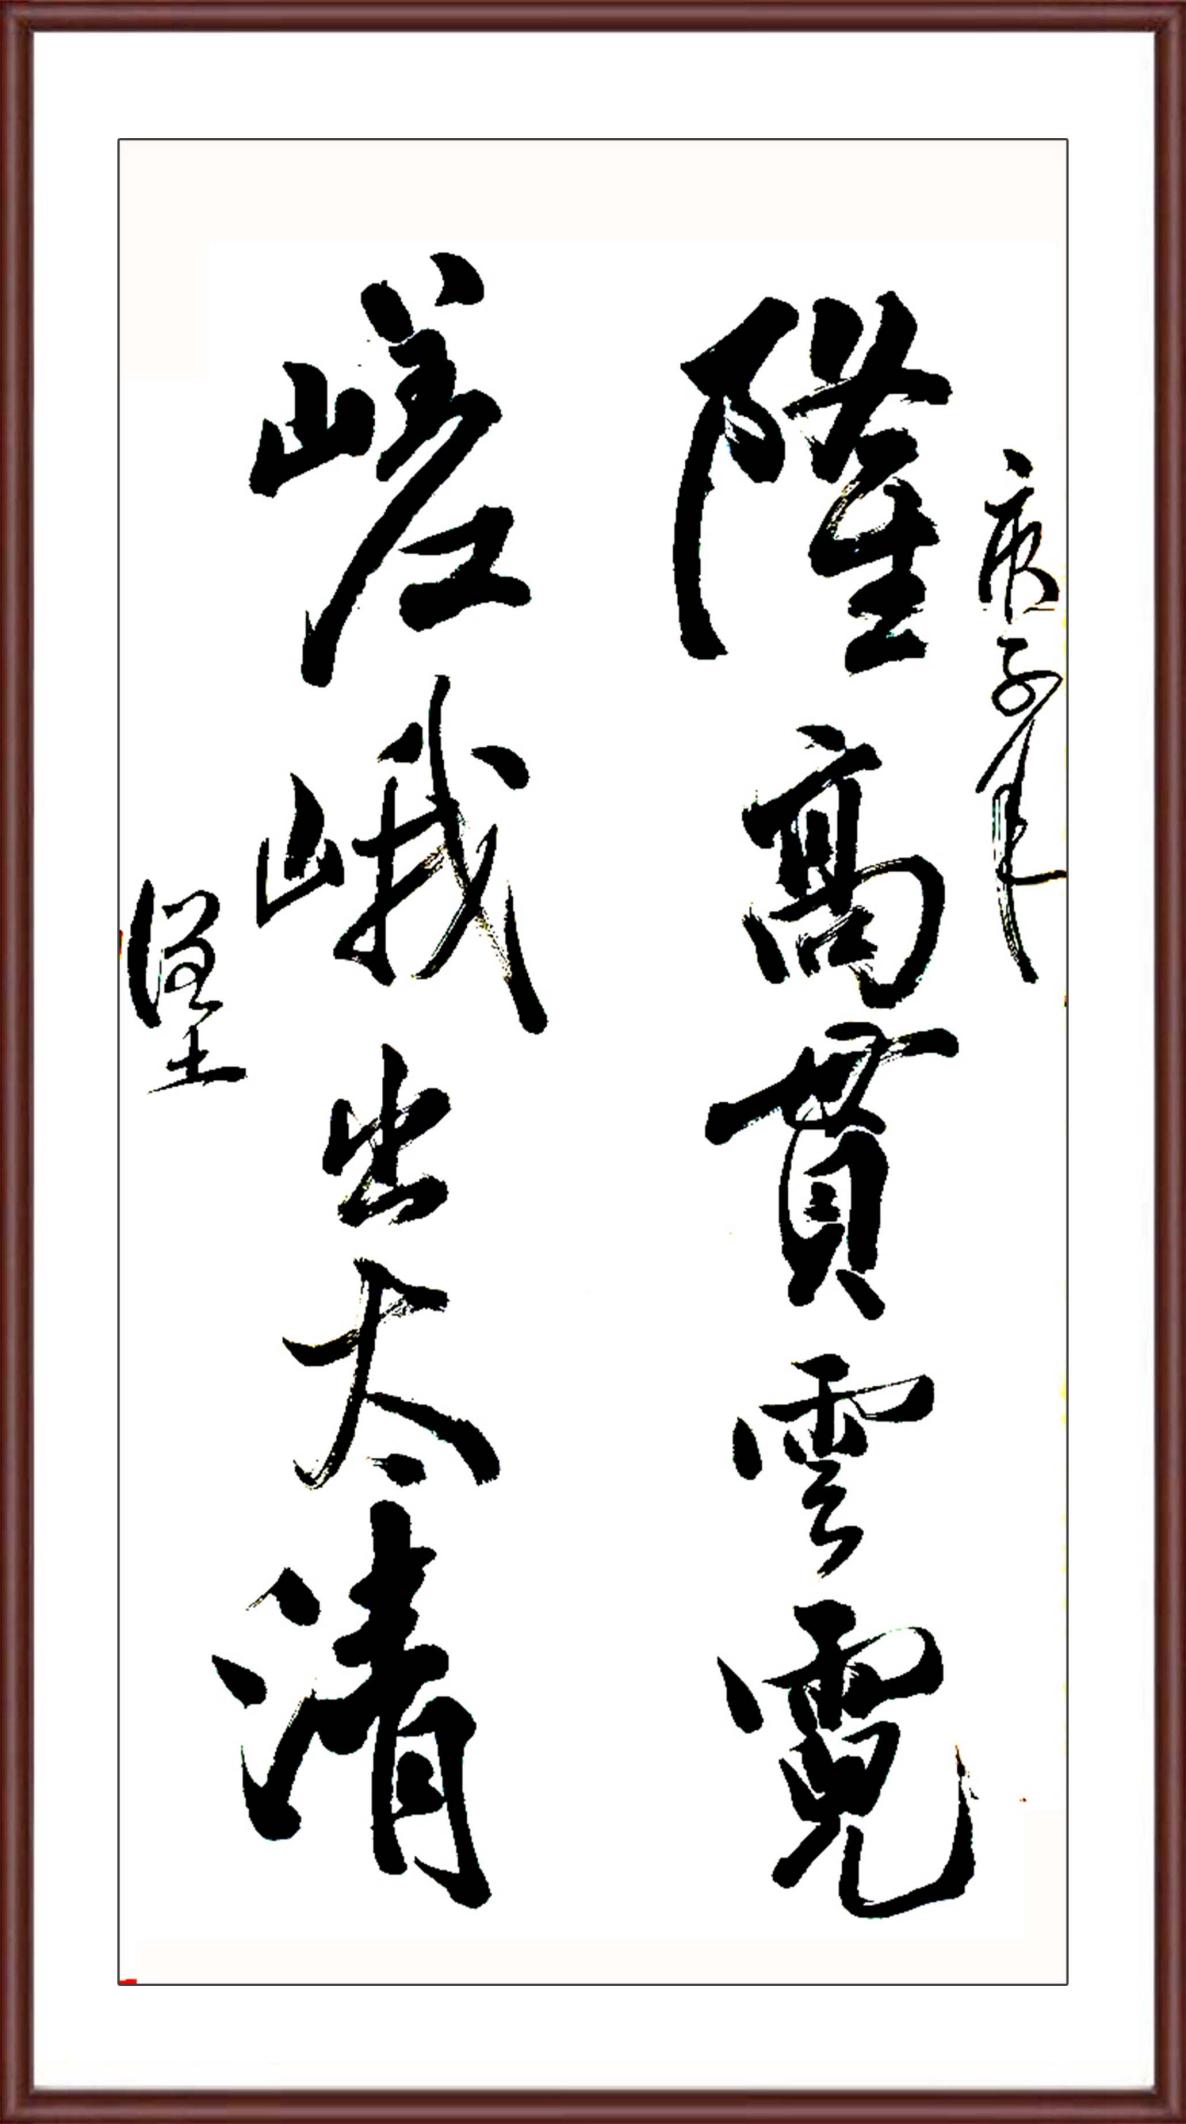 庚子年
隆高貫雲霓
嵯峨出太清